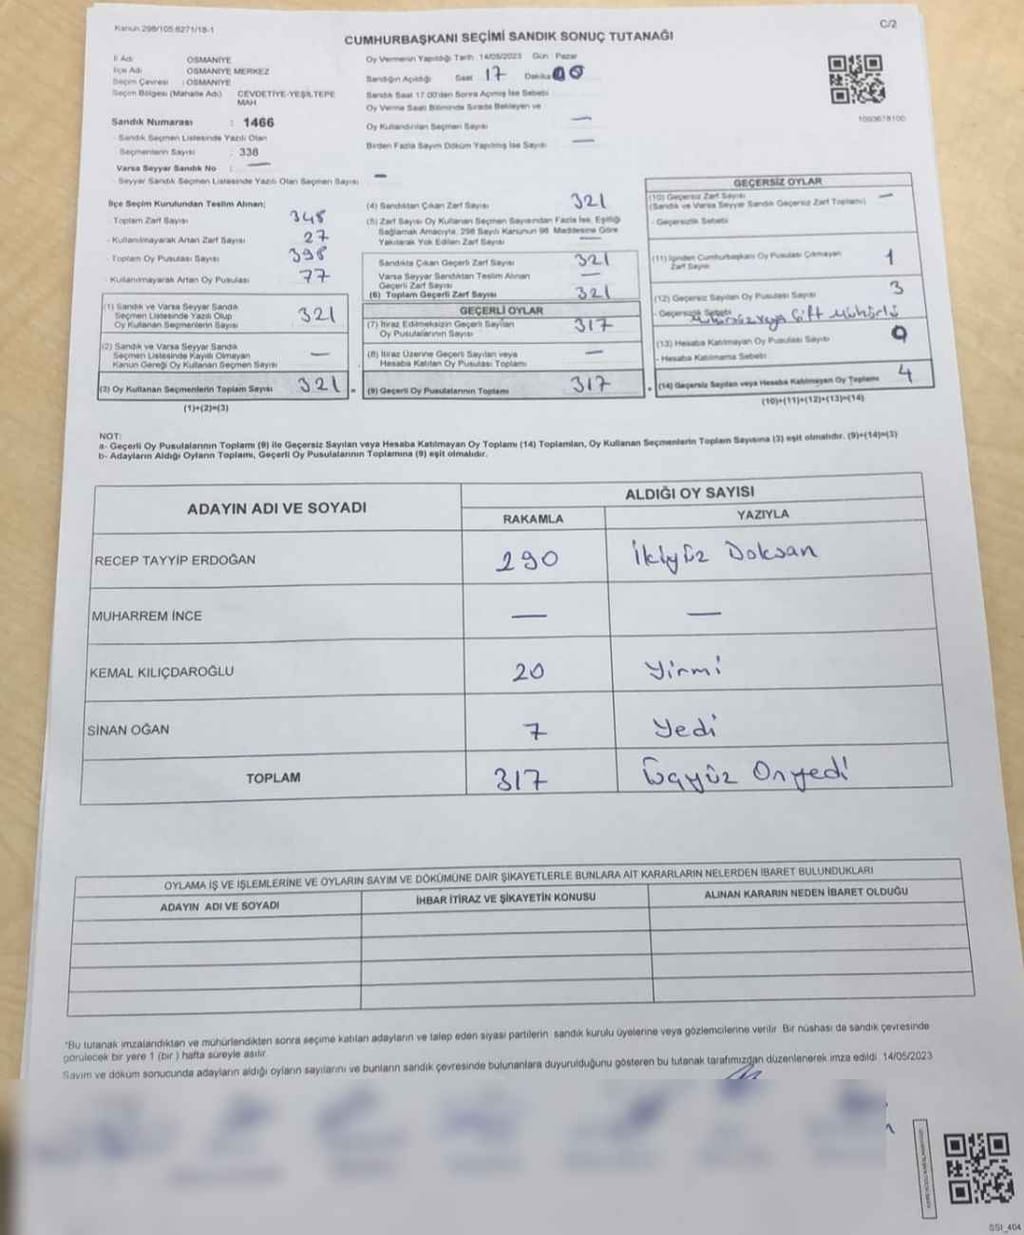 Kanun 298/105.6271/18-1
C/2
CUMHURBAŞKANI SEÇİMİ SANDIK SONUÇ TUTANAĞI
İl Adı OSMANİYE
İlçe Adı OSMANİYE MERKEZ
Seçim Çevresi : OSMANİYE
Seçim Bölgesi (Mahalle Adı) CEVDETİYE-YEŞİLTEPE MAH
Sandık Numarası : 1466
Sandık Seçmen Listesinde Yazılı Olan
Seçmenlerin Sayısı : 338
Varsa Seyyar Sandık No : —
Seyyar Sandık Seçmen Listesinde Yazılı Olan Seçmen Sayısı —
Oy Vermenin Yapıldığı Tarih 14/05/2023 Gün Pazar
Sandığın Açıldığı Saat 17 Dakika 00
Sandık Saat 17.00'den Sonra Açılmış İse Sebebi
Oy Verme Saati Bitiminde Sırada Bekleyen ve
Oy Kullandırılan Seçmen Sayısı —
Birden Fazla Sayım Döküm Yapılmış İse Sayısı —
İlçe Seçim Kurulundan Teslim Alınan;
Toplam Zarf Sayısı 348
- Kullanılmayarak Artan Zarf Sayısı 27
- Toplam Oy Pusulası Sayısı 398
- Kullanılmayarak Artan Oy Pusulası 77
(1) Sandık ve Varsa Seyyar Sandık
Seçmen Listesinde Yazılı Olup
Oy Kullanan Seçmenlerin Sayısı 321
(2) Sandık ve Varsa Seyyar Sandık
Seçmen Listesinde Kayıtlı Olmayan
Kanun Gereği Oy Kullanan Seçmen Sayısı —
(3) Oy Kullanan Seçmenlerin Toplam Sayısı 321
(1)+(2)=(3)
(4) Sandıktan Çıkan Zarf Sayısı 321
(5) Zarf Sayısı Oy Kullanan Seçmen Sayısından Fazla İse, Eşitliği
Sağlamak Amacıyla, 298 Sayılı Kanunun 98. Maddesine Göre
Yakılarak Yok Edilen Zarf Sayısı —
Sandıkta Çıkan Geçerli Zarf Sayısı 321
Varsa Seyyar Sandıktan Teslim Alınan
Geçerli Zarf Sayısı —
(6) Toplam Geçerli Zarf Sayısı 321
GEÇERLİ OYLAR
(7) İtiraz Edilmeksizin Geçerli Sayılan
Oy Pusulalarının Sayısı 317
(8) İtiraz Üzerine Geçerli Sayılan veya
Hesaba Katılan Oy Pusulası Toplamı —
(9) Geçerli Oy Pusulalarının Toplamı 317
1093678100
GEÇERSİZ OYLAR
(10) Geçersiz Zarf Sayısı —
(Sandık ve Varsa Seyyar Sandık Geçersiz Zarf Toplamı)
- Geçersizlik Sebebi
(11) İçinden Cumhurbaşkanı Oy Pusulası Çıkmayan
Zarf Sayısı 1
(12) Geçersiz Sayılan Oy Pusulası Sayısı 3
- Geçersizlik Sebebi Mühürsüz veya Çift Mühürlü
(13) Hesaba Katılmayan Oy Pusulası Sayısı 0
- Hesaba Katılmama Sebebi
(14) Geçersiz Sayılan veya Hesaba Katılmayan Oy Toplamı 4
(10)+(11)+(12)+(13)=(14)
NOT:
a- Geçerli Oy Pusulalarının Toplamı (9) ile Geçersiz Sayılan veya Hesaba Katılmayan Oy Toplamı (14) Toplamları, Oy Kullanan Seçmenlerin Toplam Sayısına (3) eşit olmalıdır. (9)+(14)=(3)
b- Adayların Aldığı Oyların Toplamı, Geçerli Oy Pusulalarının Toplamına (9) eşit olmalıdır.
ADAYIN ADI VE SOYADI ALDIĞI OY SAYISI
RAKAMLA YAZIYLA
RECEP TAYYİP ERDOĞAN 290 İkiyüz Doksan
MUHARREM İNCE — —
KEMAL KILIÇDAROĞLU 20 Yirmi
SİNAN OĞAN 7 Yedi
TOPLAM 317 Üçyüz Onyedi
OYLAMA İŞ VE İŞLEMLERİNE VE OYLARIN SAYIM VE DÖKÜMÜNE DAİR ŞİKAYETLERLE BUNLARA AİT KARARLARIN NELERDEN İBARET BULUNDUKLARI
ADAYIN ADI VE SOYADI İHBAR İTİRAZ VE ŞİKAYETİN KONUSU ALINAN KARARIN NEDEN İBARET OLDUĞU
*Bu tutanak imzalandıktan ve mühürlendikten sonra seçime katılan adayların ve talep eden siyasi partilerin sandık kurulu üyelerine veya gözlemcilerine verilir. Bir nüshası da sandık çevresinde
görülecek bir yere 1 (bir) hafta süreyle asılır.
Sayım ve döküm sonucunda adayların aldığı oyların sayılarını ve bunların sandık çevresinde bulunanlara duyurulduğunu gösteren bu tutanak tarafımızdan düzenlenerek imza edildi. 14/05/2023
SSI_404